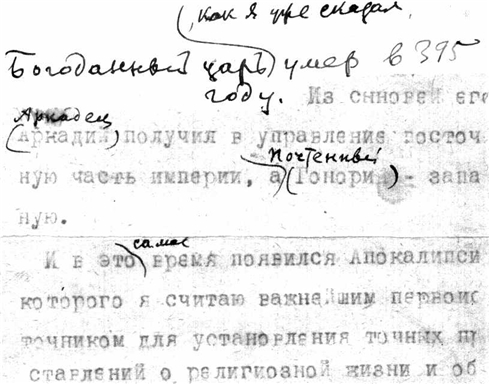 , как я уже сказал,
Богоданный царь умер в 395
году. Из синовей его
Аркадец
(Аркадий) получил в управление восточ
Почтенный
ную часть империи, а (Гонорий) - запа
ную.
самое
И в это время появился Апокалипси
которого я считаю важнейшим первоис
точником для установления точных пр
ставлений о религиозной жизни и об